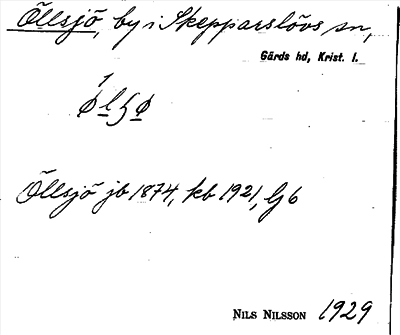 Öllsjö, by i Skepparslövs sn,
Gärds hd, Krist. l.
Öllsjö jb 1874, kb 1921, Gj 6
NILS NILSSON 1929